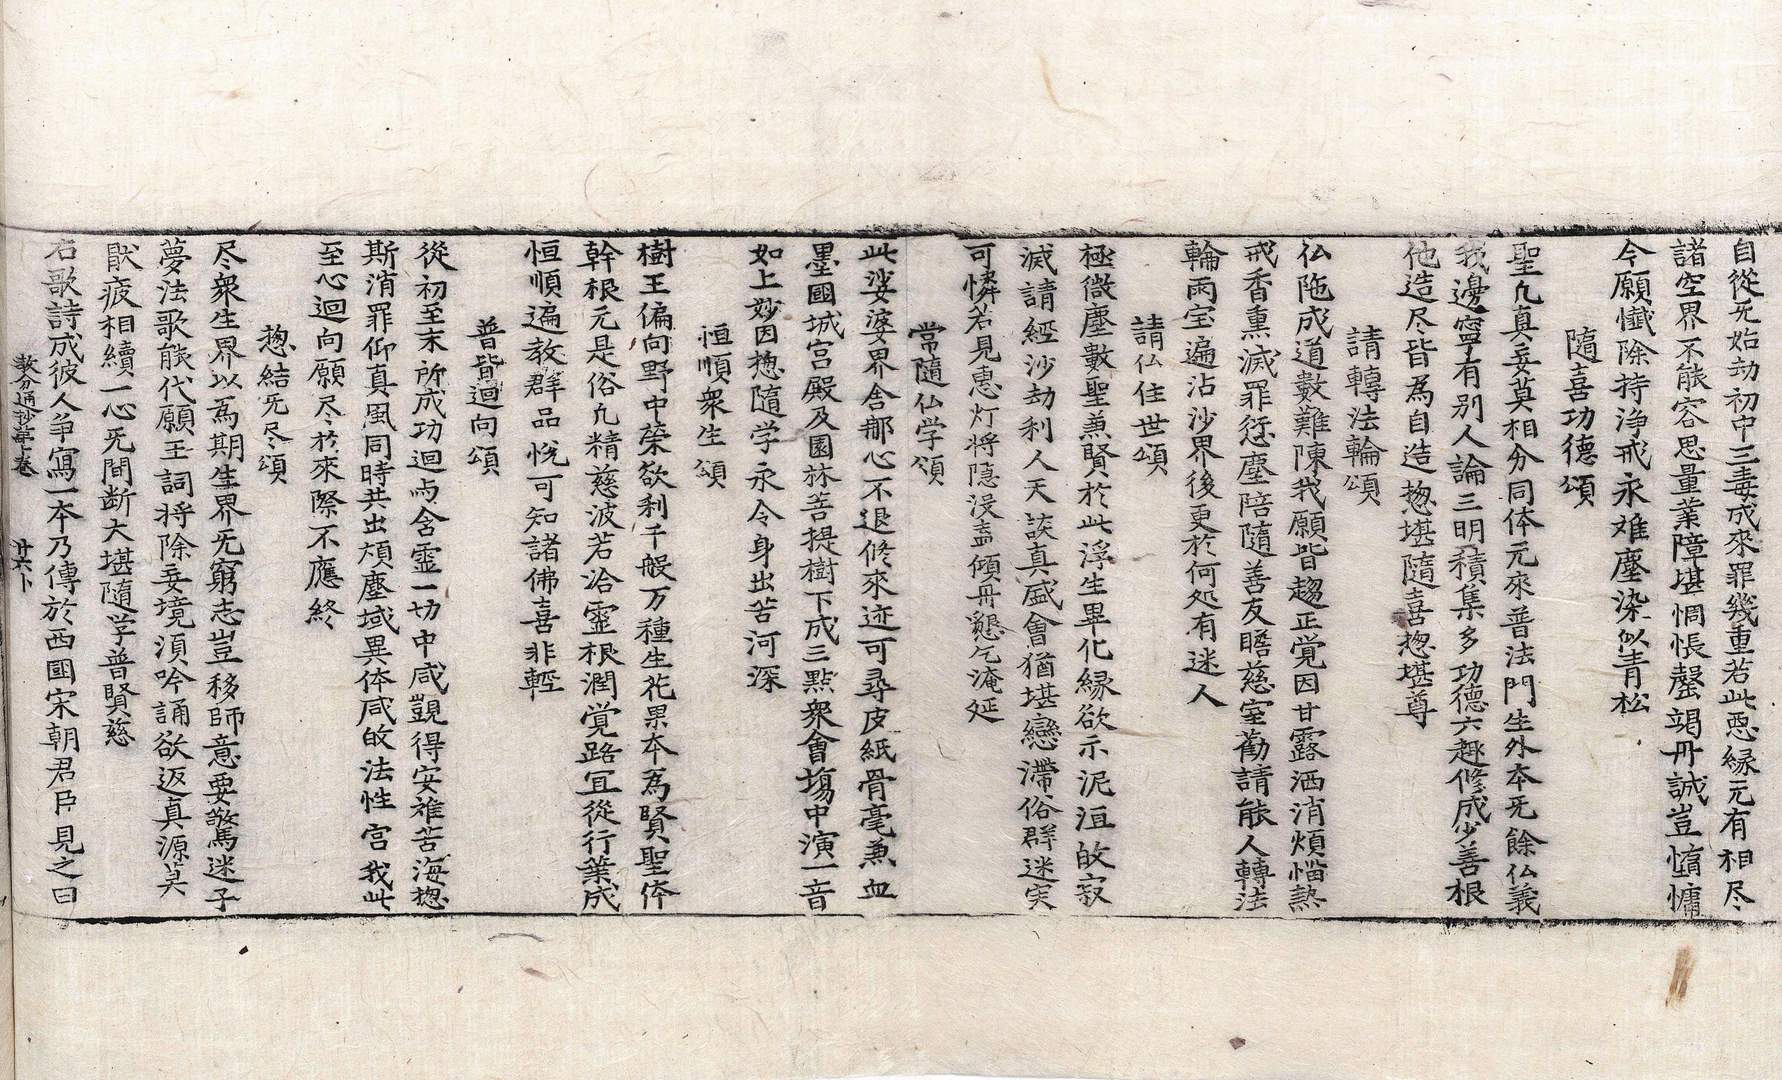 自從旡始劫初中三毒成來罪幾重若此惡緣元有相尽
諸空界不能容思量業障堪惆悵罄竭丹誠豈惰慵
今願懺除持浄戒永难塵染似青松
隨喜功德頌
聖凢真妄莫相分同体元來普法門生外本旡餘仏義
我邊寧有别人論三明積集多功德六趣修成少善根
他造尽皆為自造捴堪隨喜捴堪尊
請轉法輪頌
仏陁成道數難陳我願皆趍正覚因甘露洒消煩惱熱
戒香熏滅罪愆塵陪隨善友瞻慈室勸請能人轉法
輪雨宝遍沾沙界後更於何処有迷人
請仏住世頌
極微塵數聖兼賢於此浮生畢化縁欲示泥洹敀寂
滅請經沙劫利人天談真盛會猶堪戀滯俗群迷実
可憐若見惠灯將隠沒盍傾丹懇乞淹延
常隨仏学頌
此娑婆界舍那心不退修來迹可尋皮紙骨毫兼血
墨國城宮殿及園林菩提樹下成三點衆會塲中演一音
如上妙因捴隨学永令身出苦河深
恒順衆生頌
樹王偏向野中榮欲利千般万種生花果本爲賢聖体
幹根元是俗凢精慈波若洽霊根潤覚路宜從行業成
恒順遍教群品悅可知諸佛喜非輕
普皆迴向頌
從初至末所成功迴与含霊一切中咸覬得安離苦海捴
斯消罪仰真風同時共出煩塵域異体咸敀法性宮我此
至心迴向願尽於來際不應終
捴結旡尽頌
尽衆生界以為期生界旡窮志豈移師意要驚迷子
夢法歌能代願王詞將除妄境湏吟誦欲返真源莫
猒疲相續一心旡間断大堪隨学普賢慈
右歌詩成彼人爭寫一本乃傳於西國宋朝君臣見之曰
教分通抄第上卷 廿六卜